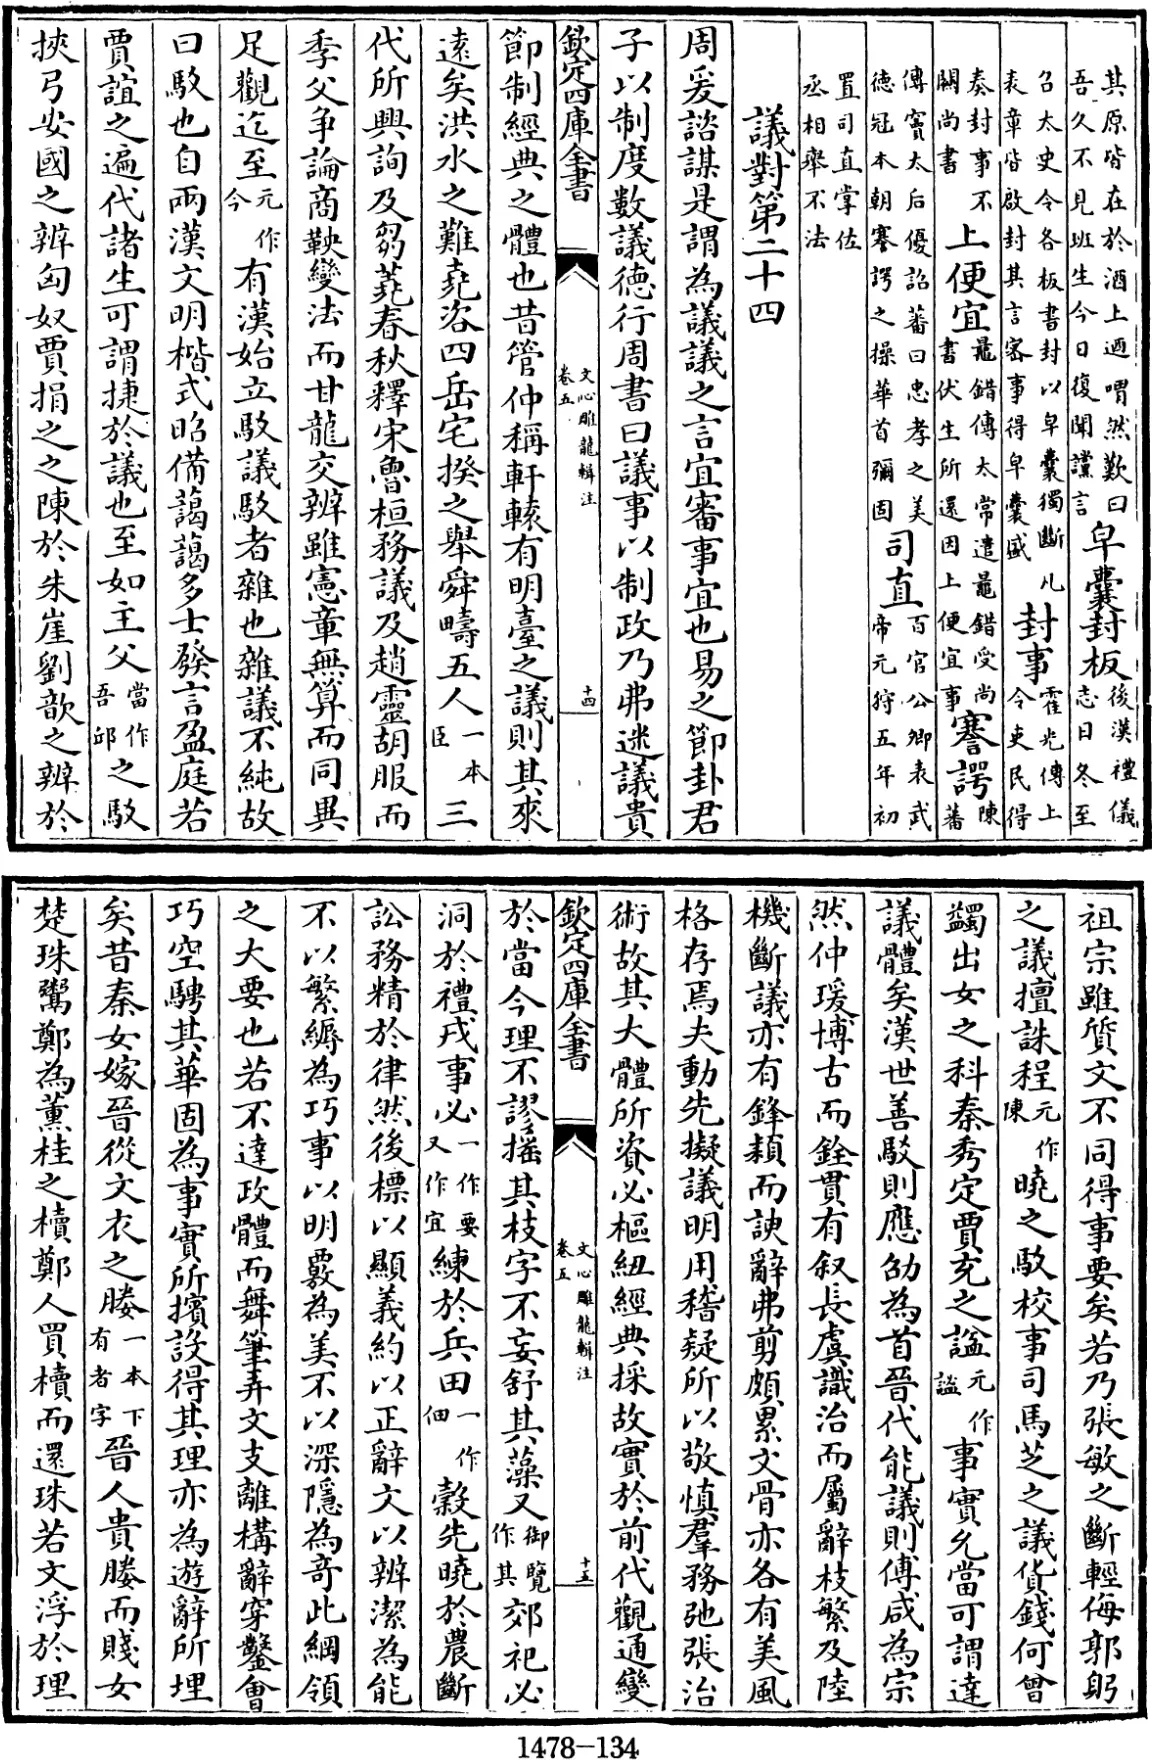 其原皆在於酒上迺喟然歎曰
吾久不見班生今日復聞讜言
皁囊封板
後漢禮儀
志日冬至
召太史令各板書封以皁囊獨斷凡
表章皆啟封其言宻事得皁囊盛
封事
霍光傳上
令吏民得
奏封事不
關尚書
上便宜
鼂錯傳太常遣鼂錯受尚
書伏生所還因上便宜事
謇諤
陳
蕃
傳竇太后優詔蕃曰忠孝之美
德冠本朝謇諤之操華首彌固
司直
百官公卿表武
帝元狩五年初
置司直掌佐
丞相舉不法
議對第二十四
周爰諮謀是謂為議議之言宜審事宜也易之節卦君
子以制度數議德行周書曰議事以制政乃弗迷議貴
欽定四庫全書
文心雕龍輯注
卷五
十四
節制經典之體也昔管仲稱軒轅有明臺之議則其來
遠矣洪水之難堯咨四岳宅揆之舉舜疇五人一本臣三
代所興詢及芻蕘春秋釋宋魯桓務議及趙靈胡服而
季父爭論商鞅變法而甘龍交辨雖憲章無算而同異
足觀迄至元作今有漢始立駮議駮者雜也雜議不純故
曰駮也自兩漢文明楷式昭備藹藹多士發言盈庭若
賈誼之遍代諸生可謂捷於議也至如主父當作吾邱之駮
挾弓安國之辨匈奴賈捐之之陳於朱崖劉歆之辨於
祖宗雖質文不同得事要矣若乃張敏之斷輕侮郭躬
之議擅誅程元作陳曉之駮校事司馬芝之議貨錢何曾
蠲出女之科秦秀定賈充之諡元作謚事實允當可謂達
議體矣漢世善駮則應劭為首晉代能議則傅咸為宗
然仲瑗博古而銓貫有叙長虞識治而屬辭枝繁及陸
機斷議亦有鋒穎而諛辭弗剪頗累文骨亦各有美風
格存焉夫動先擬議明用稽疑所以敬慎羣務弛張治
術故其大體所資必樞紐經典採故實於前代觀通變
欽定四庫全書
文心雕龍輯注
卷五
十五
於當今理不謬搖其枝字不妄舒其藻又御覽作其郊祀必
洞於禮戎事必一作要又作宜練於兵田一作佃穀先曉於農斷
訟務精於律然後標以顯義約以正辭文以辨潔為能
不以繁縟為巧事以明覈為美不以深隱為奇此綱領
之大要也若不達政體而舞筆弄文支離構辭穿鑿會
巧空騁其華固為事實所擯設得其理亦為遊辭所埋
矣昔秦女嫁晉從文衣之媵一本下有者字晉人貴媵而賤女
楚珠鬻鄭為薰桂之櫝鄭人買櫝而還珠若文浮於理
1478-134